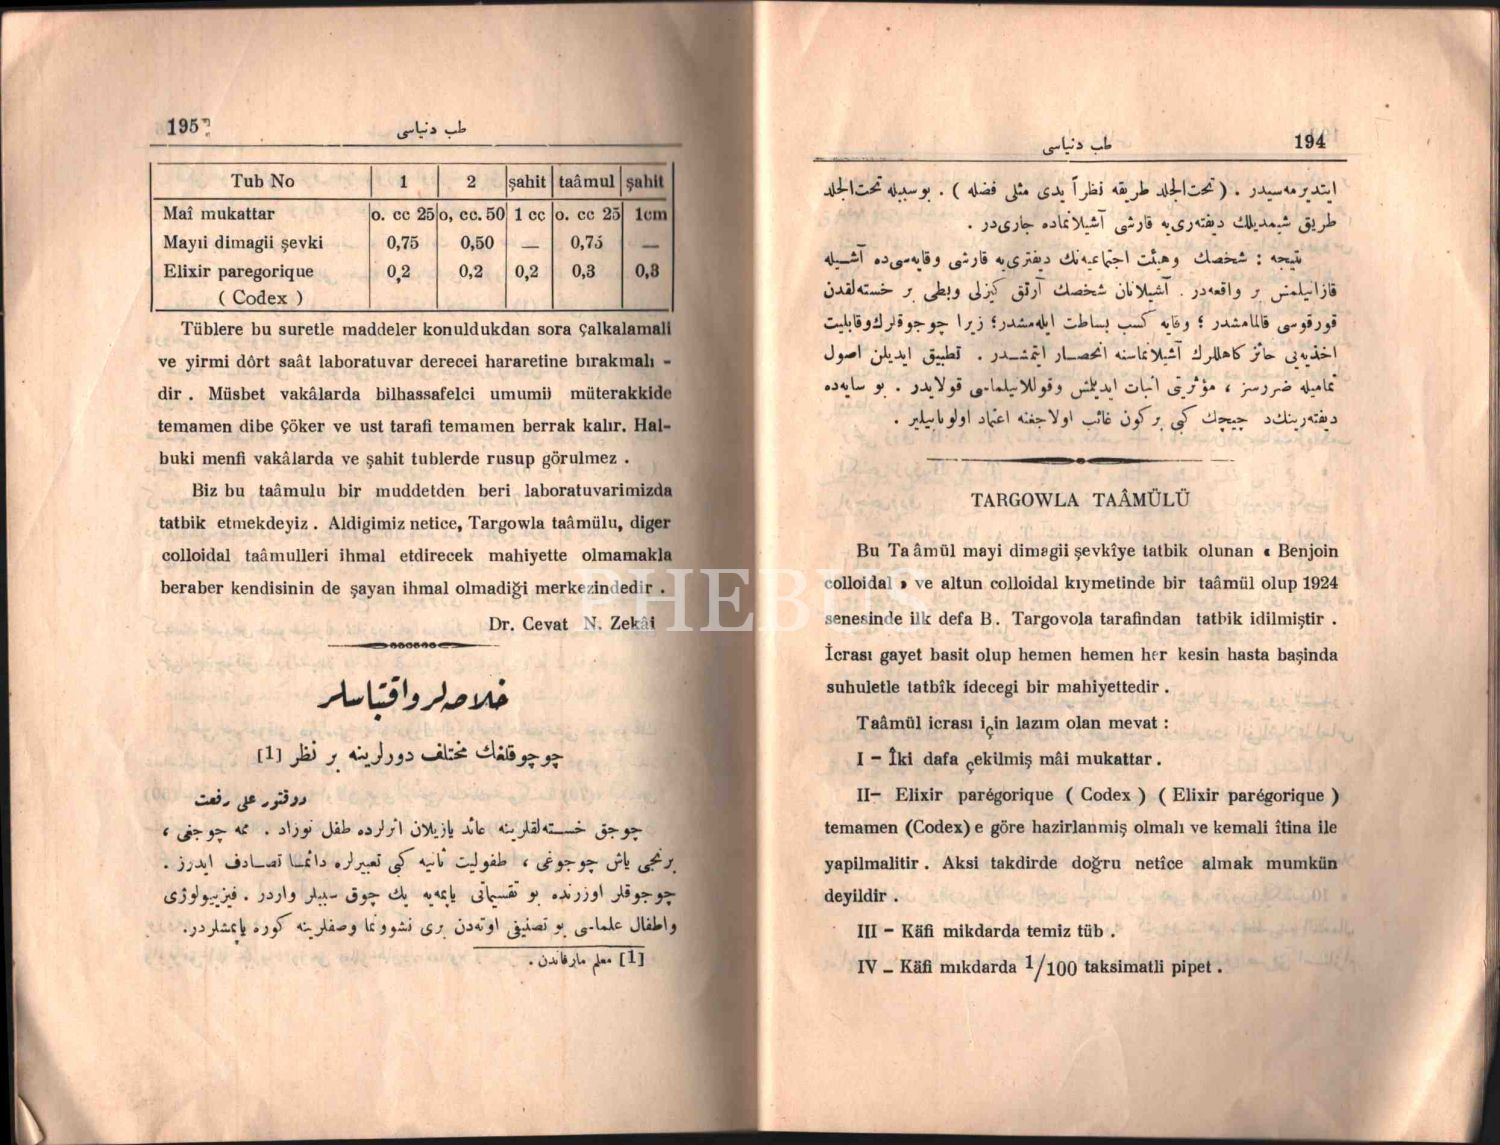 194
طب دنیاسی
ایتدیرمه‌سیدر . ( تحت‌الجلد طریقه نظراً یدی مثلی فضله ) . بو سبیله تحت‌الجلد
طریق شیمدیلك دیفتری‌یه قارشی آشیلانماده جاری‌در .
نتیجه : شخصك وهیئت اجتماعیه‌نك دیفتری‌یه قارشی وقایه‌سی‌ده آشیله
قازانیلمش بر واقعه‌در . آشیلانان شخصك آرتق کیزلی وبطی بر خسته‌لقدن
قورقوسی قالمامشدر ؛ وقایه کسب بساطت ایله‌مشدر ؛ زیرا چوجوقلرك‌وقابلیت
اخذیه‌یی حائز کاهللرك آشیلانماسنه انحصار ایتمشدر . تطبیق ایدیلن اصول
تمامیله ضررسز ، مؤثریتی اثبات ایدیلمش وقوللانیلماسی قولایدر . بو سایه‌ده
چیچك کبی برکون غائب اولاجغنه اعتماد اولونابیلیر .
TARGOWLA TAÂMÜLÜ
Bu Taâmül mayi dimagii şevkîye tatbik olunan « Benjoin
colloidal » ve altun colloidal kıymetinde bir taâmül olup 1924
senesinde ilk defa B. Targovola tarafindan tatbik idilmiştir .
İcrası gayet basit olup hemen hemen her kesin hasta başinda
suhuletle tatbîk idecegi bir mahiyettedir .
Taâmül icrası için lazım olan mevat :
I – Îki dafa çekilmiş mâi mukattar .
II– Elixir parégorique ( Codex ) ( Elixir parégorique )
temamen (Codex) e göre hazirlanmiş olmalı ve kemali îtina ile
yapilmalitir . Aksi takdirde doğru netîce almak mumkün
deyildir .
III – Käfi mikdarda temiz tüb .
IV – Käfi mıkdarda 1/100 taksimatli pipet .
195
طب دنیاسی
Tub No 1 2 şahit taâmul şahit
Maî mukattar o. cc 25 o, cc. 50 1 cc o. cc 25 1cm
Mayıi dimagii şevki 0,75 0,50 — 0,75 —
Elixir paregorique 0,2 0,2 0,2 0,3 0,3
( Codex )
Tüblere bu suretle maddeler konuldukdan sora çalkalamali
ve yirmi dôrt saât laboratuvar derecei hararetine bırakmalı –
dir . Müsbet vakâlarda bilhassafelci umumiî müterakkide
temamen dibe çöker ve ust tarafi temamen berrak kalır. Hal–
buki menfi vakâlarda ve şahit tublerde rusup görulmez .
Biz bu taâmulu bir muddetden beri laboratuvarimizda
tatbik etmekdeyiz . Aldigimiz netice, Targowla taâmülu, diger
colloidal taâmulleri ihmal etdirecek mahiyette olmamakla
beraber kendisinin de şayan ihmal olmadiği merkezindedir .
Dr. Cevat N. Zekâi
خلاصه‌لر و اقتباسلر
چوجوقلغك مختلف دورلرینه بر نظر [1]
دوقتور علی رفعت
چوجق خسته‌لقلرینه عائد یازیلان اثرلرده طفل نوزاد . ممه چوجغی ،
برنجی یاش چوجوغی ، طفولیت ثانیه کبی تعبیرلره دائما تصادف ایدرز .
چوجوقلر اوزرنده بو تقسیماتی یاپمه‌یه پك چوق سببلر واردر . فیزیولوژی
واطفال علماسی بو تصنیفی اوته‌دن بری نشوونما وصفلرینه کوره یاپمشلردر.
[1] معلم مارفاندن .
PHEBUS